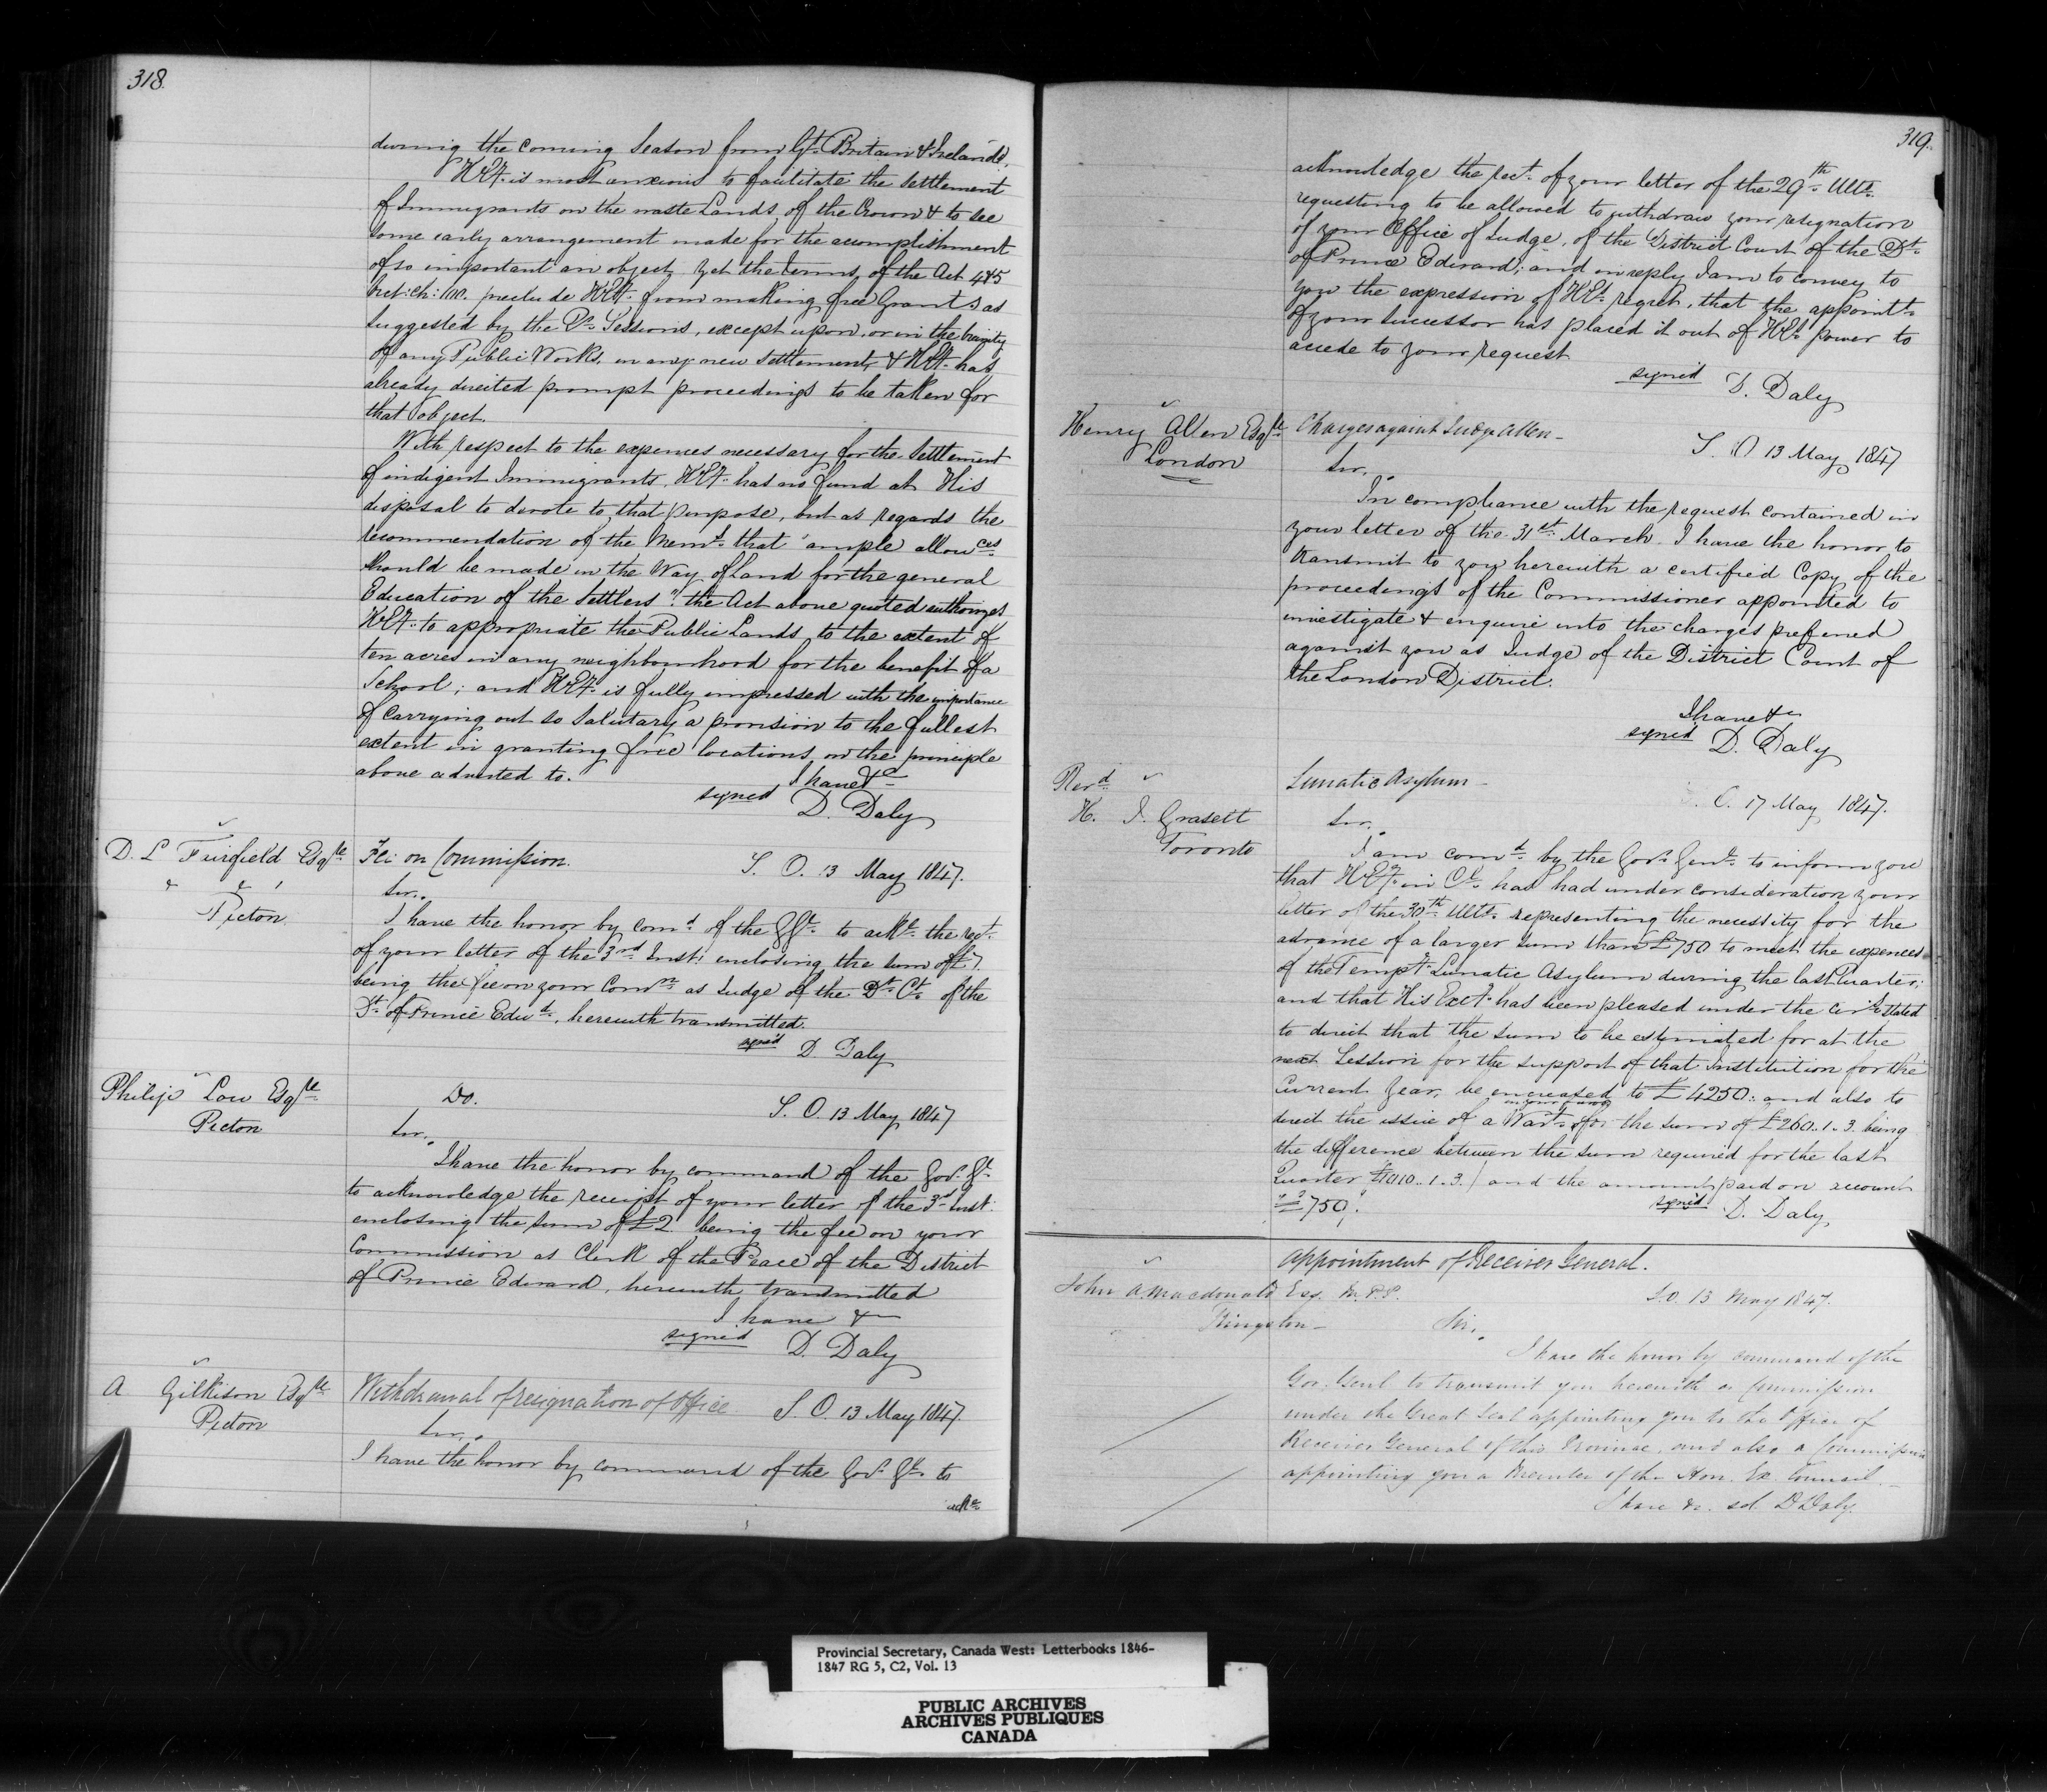 318.
during the coming Season from Gt. Britain & Ireland.
HEy. is most anxious to facilitate the settlement
of Immigrants on the waste Lands of the Crown & to see
some early arrangement made for the accomplishment
of so important an object, yet the terms of the Act 4&5
Vict: Ch: 100. preclude HEy. from making free Grants as
suggested by the Qr. Sessions, except upon, or in the vicinity
of any Public Works, in any new settlement, & HEy. has
already directed prompt proceedings to be taken for
that object.
With respect to the expences necessary for the Settlement
of indigent Immigrants, HEy. has no fund at His
disposal to devote to that purpose, but as regards the
recommendation of the Memt. that "ample allowces
should be made in the Way of Land for the general
Education of the Settlers". the Act above quoted authorizes
HEy. to appropriate the Public Lands to the extent of
ten acres in any neighbourhood for the benefit of a
School; and HEy. is fully impressed with the importance
of carrying out so Salutary a provision to the fullest
extent in granting free locations on the principle
above adverted to.
I have &c
signed D. Daly
D. L. Fairfield Esqre
& & /
Picton
Fee on Commission.
S. O. 13 May 1847.
Sir,
I have the honor by comd. of the GGl. to ackge. the rect.
of your letter of the 3rd Inst: enclosing the sum of £7.
being the fee on your Comon. as Judge of the Dt. Ct. of the
Dt. of Prince Edwd., herewith transmitted.
signed D. Daly
Philip Low Esqre
Picton
Do.
S. O. 13 May 1847
Sir,
I have the honor by command of the Govr. Gl.
to acknowledge the receipt of your letter of the 3rd Inst:
enclosing the sum of £2. being the fee on your
Commission as Clerk of the Peace of the District
of Prince Edward, herewith transmitted
I have &c
signed D. Daly
A. Gilkison Esqre
Picton
Withdrawal of resignation of Office
S. O. 13 May 1847.
Sir,
I have the honor by command of the Govr. Gl. to
acke.
319.
acknowledge the rect. of your letter of the 29th Ulto.
requesting to be allowed to withdraw your resignation
of your Office of Judge, of the District Court of the Dt.
of Prince Edward; and in reply I am to convey to
you the expression of HEs. regret, that the appointt.
of your successor has placed it out of HEs. power to
accede to your request
signed D. Daly
Henry Allen Esqre
London
Charges against Judge Allen -
S. O 13 May 1847
Sir,
In compliance with the request contained in
your letter of the 31st March. I have the honor to
transmit to you herewith a certified Copy of the
proceedings of the Commissioner appointed to
investigate & enquire into the charges preferred
against you as Judge of the District Court of
the London District.
I have &c
signed D. Daly
Revd.
H. J. Grasett
Toronto
Lunatic Asylum -
S. O. 17 May 1847.
Sir,
I am comd. by the Govr. Genl. to inform you
that HEy. in Cl. has had under consideration your
letter of the 30th Ulto. representing the necessity for the
advance of a larger sum than £750 to meet the expences
of the Tempy. Lunatic Asylum during the last Quarter;
and that His Excy. has been pleased under the circs. stated
to direct that the sum to be estimated for at the
next Session for the support of that Institution for the
Current Year, be increased to £4250.. and also to
in your favor
direct the issue of a Wart. for the sum of £260..1..3. being
the difference between the sum required for the last
Quarter £1010..1..3./ and the amount paid on account
"£750".
signed D. Daly
Appointment of Receiver General.
John A. Macdonald Esq. M.P.P.
Kingston -
S.O. 13 May 1847.
Sir,
I have the honor by command of the
Gov. Genl to transmit you herewith a Commission
under the Great Seal appointing you to the Office of
Receiver General of this Province, and also a Commission
appointing you a Member of the Hon. Ex. Council. -
I have &c. sd D Daly.
Provincial Secretary, Canada West: Letterbooks 1846-
1847 RG 5, C2, Vol. 13
PUBLIC ARCHIVES
ARCHIVES PUBLIQUES
CANADA